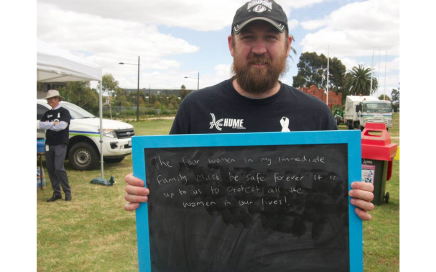 HUME
The four women in my immediate
family must be safe forever it is
up to us to protect all the
women in our lives!